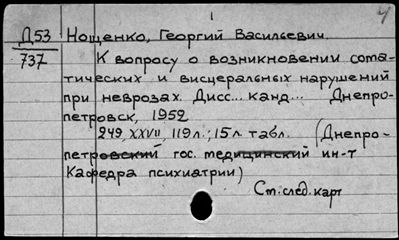 1
4
Д53 Нощенко, Георгий Васильевич.
737 К вопросу о возникновении сома-
тических и висцеральных нарушений
при неврозах. Дисс... канд... Днепро-
петровск, 1952
249, XXVII, 119 л.; 15 л. табл. (Днепро-
петровский гос. медицинский ин-т
Кафедра психиатрии)
См. след. карт